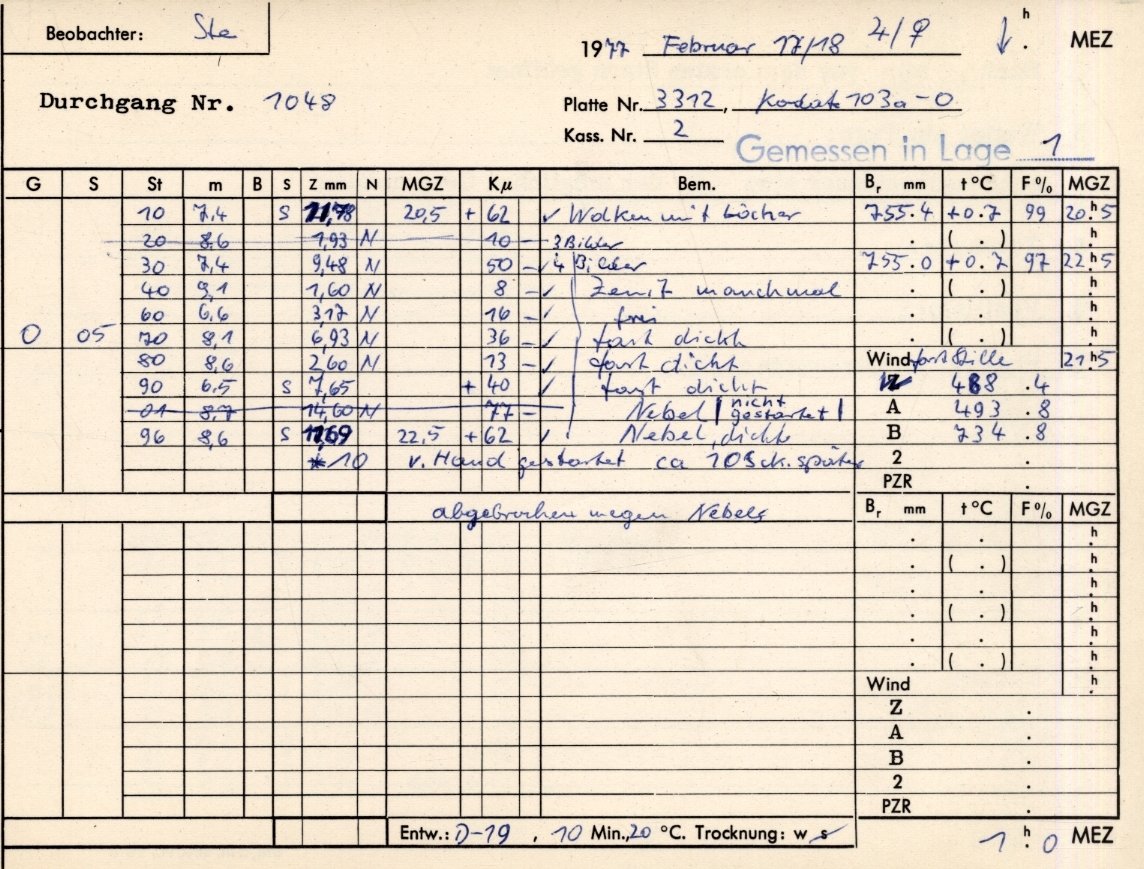 Beobachter: Ste
1977 Februar 17/18 4/♀ h . MEZ
Durchgang Nr. 1048
Platte Nr. 3312, Kodak 103a-O
Kass. Nr. 2
Gemessen in Lage 1
G S St m B S Z mm N MGZ Kμ Bem. Br mm t °C F % MGZ
10 7,4 S 11,78 20,5 + 62 ✓ Wolken mit Löcher 755.4 +0.7 99 20h5
20 8,6 1,93 N 10 – 3 Bilder . ( . ) h.
30 7,4 9,48 N 50 – ✓ 4 Bilder 755.0 +0.7 97 22h5
40 9,1 1,60 N 8 – ✓ Zenit manchmal . ( . ) h.
60 6,6 3,17 N 16 – ✓ frei . . h.
0 05 70 8,1 6,93 N 36 – ✓ fast dicht . ( . ) h.
80 8,6 2,60 N 13 – ✓ fast dicht Wind fast Stille 21h5
90 6,5 S 7,65 + 40 ✓ fast dicht Z 488 .4
01 8,7 14,60 N 77 – Nebel | nicht gestartet | A 493 .8
96 8,6 S 11,69 22,5 + 62 ✓ Nebel, dicht B 734 .8
* 10 v. Hand gestartet ca 10 Sek. später 2 .
PZR .
abgebrochen wegen Nebels Br mm t °C F % MGZ
. . h.
. ( . ) h.
. . h.
. ( . ) h.
. . h.
. ( . ) h.
Wind h.
Z .
A .
B .
2 .
PZR .
Entw.: D-19 , 10 Min., 20 °C. Trocknung: w s
1 h . 0 MEZ